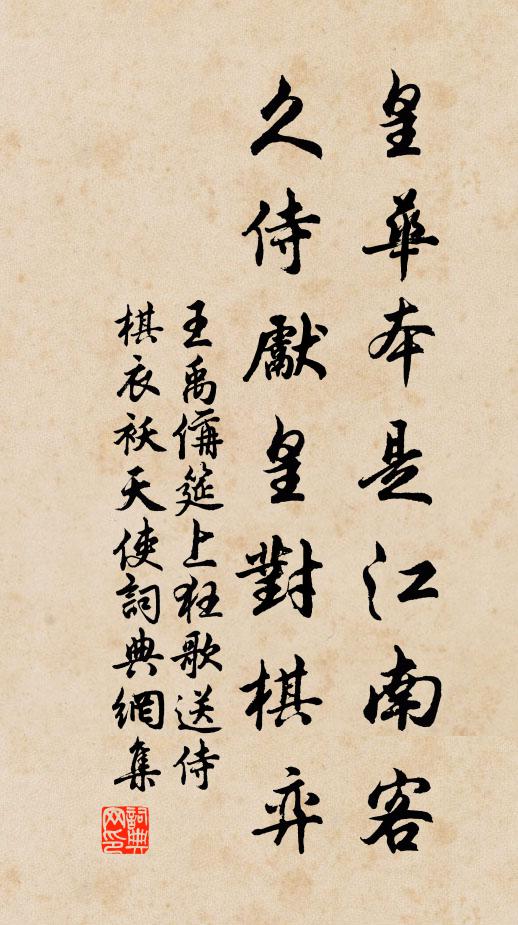 皇華本是江南客
久侍獻皇對棋弈
王禹偁筵上狂歌送侍
棋衣袄天使詞典網集
詞典网印